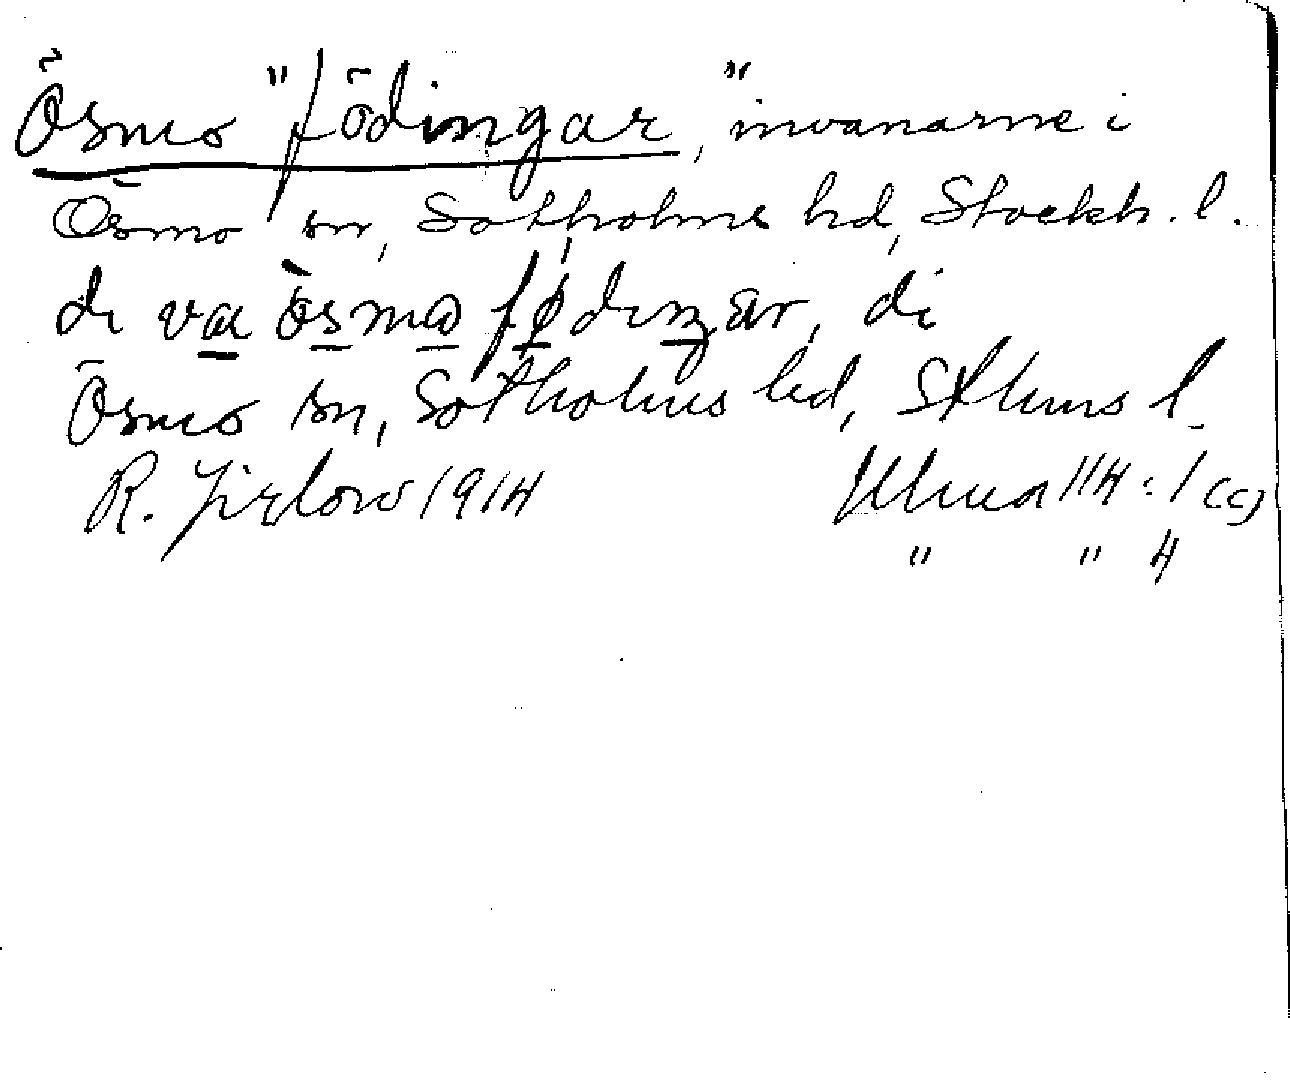 Ösmo "födingar", invånarne i
Ösmo sn, Sotholms hd, Stockh. l.
di va ösmo födiŋar, di
Ösmo sn, Sotholms hd, Sthlms l.
R. Jirlow 1914 Ulma 114:1 (c)
" " 4